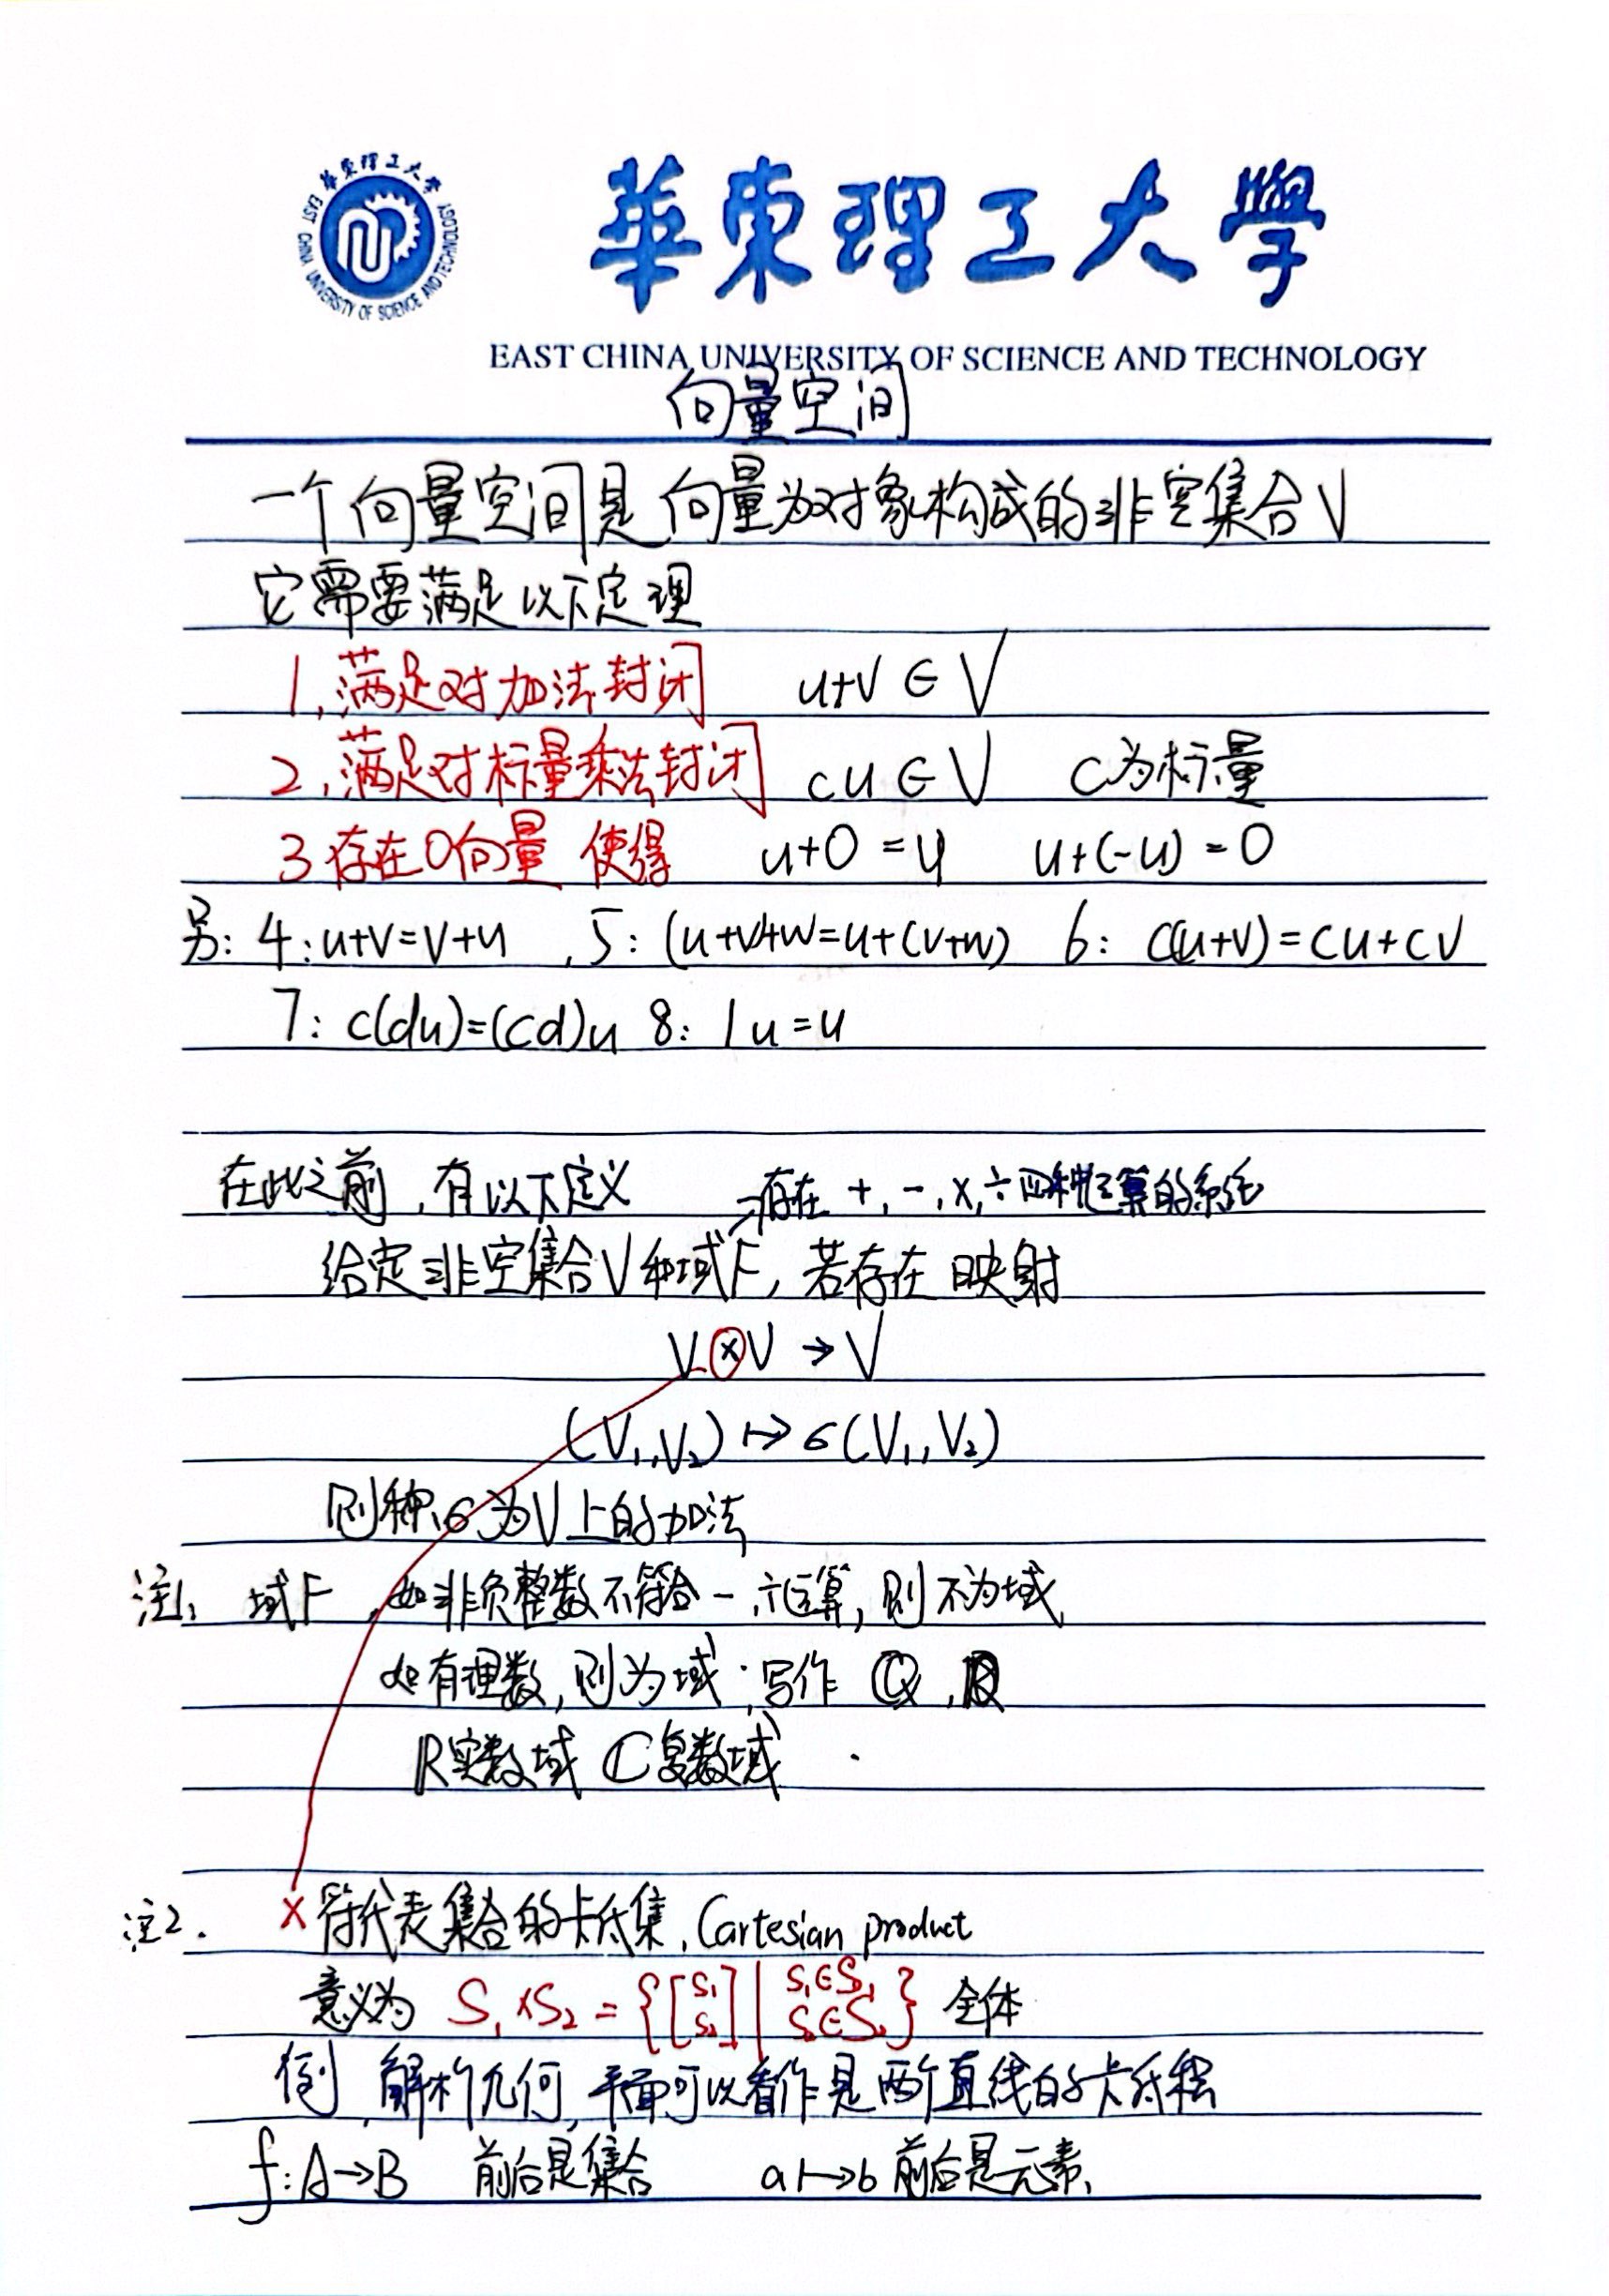 華東理工大學
EAST CHINA UNIVERSITY OF SCIENCE AND TECHNOLOGY
華東理工大學
EAST CHINA UNIVERSITY OF SCIENCE AND TECHNOLOGY
向量空间
一个向量空间是向量为对象构成的非空集合V
它需要满足以下定理
1,满足对加法封闭 u+v∈V
2,满足对标量乘法封闭 cu∈V c为标量
3 存在0向量 使得 u+0=u u+(-u)=0
另: 4:u+v=v+u ,5: (u+v)+w=u+(v+w) 6: c(u+v)=cu+cv
7: c(du)=(cd)u 8: 1u=u
在此之前,有以下定义 →存在 +,-,×,÷四种运算的系统
给定非空集合V和域F,若存在映射
V×V→V
(V₁,V₂)↦σ(V₁,V₂)
则称σ为V上的加法
注1, 域F,如非负整数不符合-,÷运算,则不为域,
如有理数,则为域;写作 ℚ,ℝ
ℝ实数域 ℂ复数域
注2. ×符代表集合的卡氏集,Cartesian product
意义为 S₁×S₂={[s₁ s₂]|s₁∈S₁ s₂∈S₂} 全体
例,解析几何,平面可以看作是两个直线的卡氏积
f:A→B 前后是集合 a↦b 前后是元素,